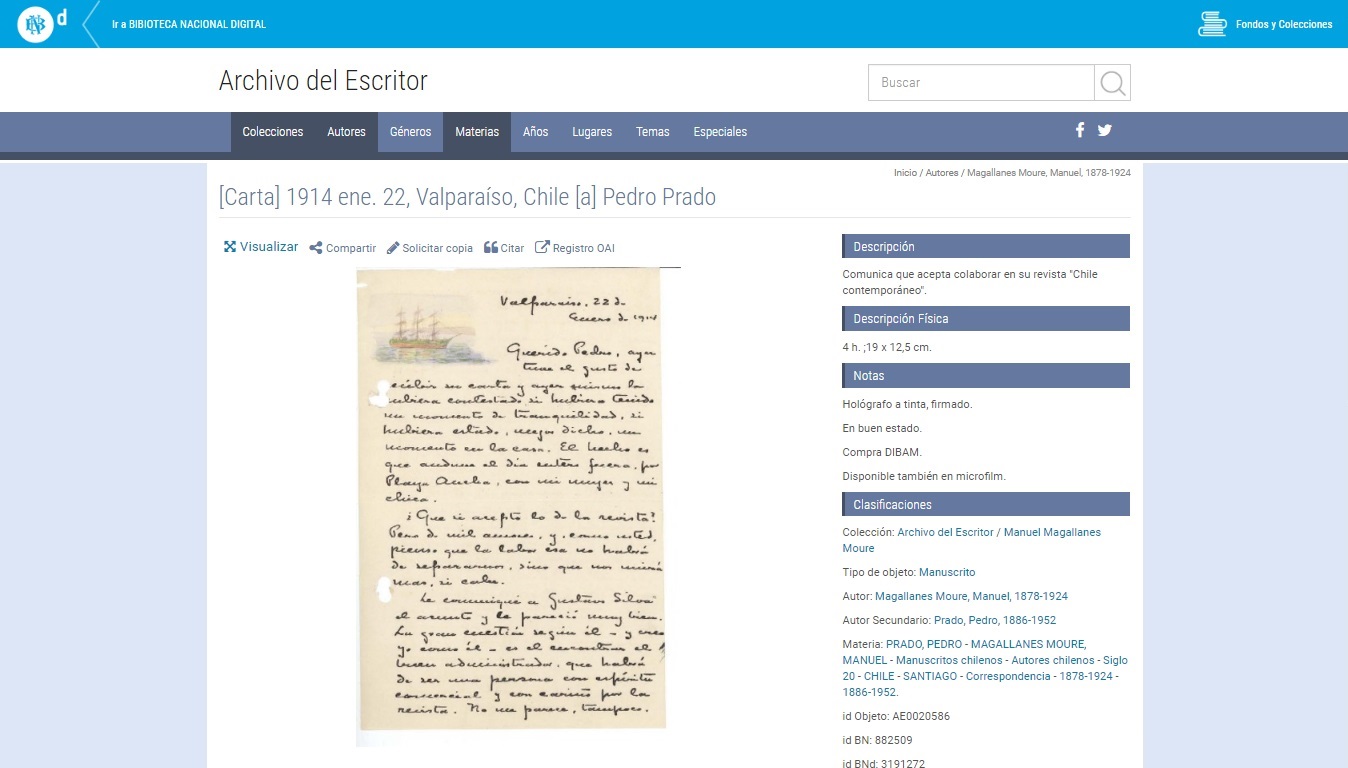 d
Ir a BIBIOTECA NACIONAL DIGITAL
Fondos y Colecciones
Archivo del Escritor
Buscar
Colecciones Autores Géneros Materias Años Lugares Temas Especiales
Inicio / Autores / Magallanes Moure, Manuel, 1878-1924
[Carta] 1914 ene. 22, Valparaíso, Chile [a] Pedro Prado
Visualizar Compartir Solicitar copia Citar Registro OAI
Valparaíso, 22 de
Enero de 1914
Querido Pedro, ayer
tuve el gusto de
recibir su carta y ayer mismo la
hubiera contestado si hubiera tenido
un momento de tranquilidad, si
hubiera estado, mejor dicho, un
momento en la casa. El hecho es
que anduve el dia entero fuera, por
Playa Ancha, con mi mujer y mi
chica.
¿Que si acepto lo de la revista?
Pero de mil amores, y, como usted,
pienso que la labor esa no habrá
de separarnos, sino que nos unirá
mas, si cabe.
Le comuniqué a Gustavo Silva
el asunto y le pareció muy bien.
La gran cuestión según él - y creo
yo como él - es el encontrar el
buen administrador, que habrá
de ser una persona con espíritu
comercial y con cariño por la
revista. No me parece, tampoco,
Descripción
Comunica que acepta colaborar en su revista "Chile
contemporáneo".
Descripción Física
4 h. ;19 x 12,5 cm.
Notas
Hológrafo a tinta, firmado.
En buen estado.
Compra DIBAM.
Disponible también en microfilm.
Clasificaciones
Colección: Archivo del Escritor / Manuel Magallanes
Moure
Tipo de objeto: Manuscrito
Autor: Magallanes Moure, Manuel, 1878-1924
Autor Secundario: Prado, Pedro, 1886-1952
Materia: PRADO, PEDRO - MAGALLANES MOURE,
MANUEL - Manuscritos chilenos - Autores chilenos - Siglo
20 - CHILE - SANTIAGO - Correspondencia - 1878-1924 -
1886-1952.
id Objeto: AE0020586
id BN: 882509
id BNd: 3191272